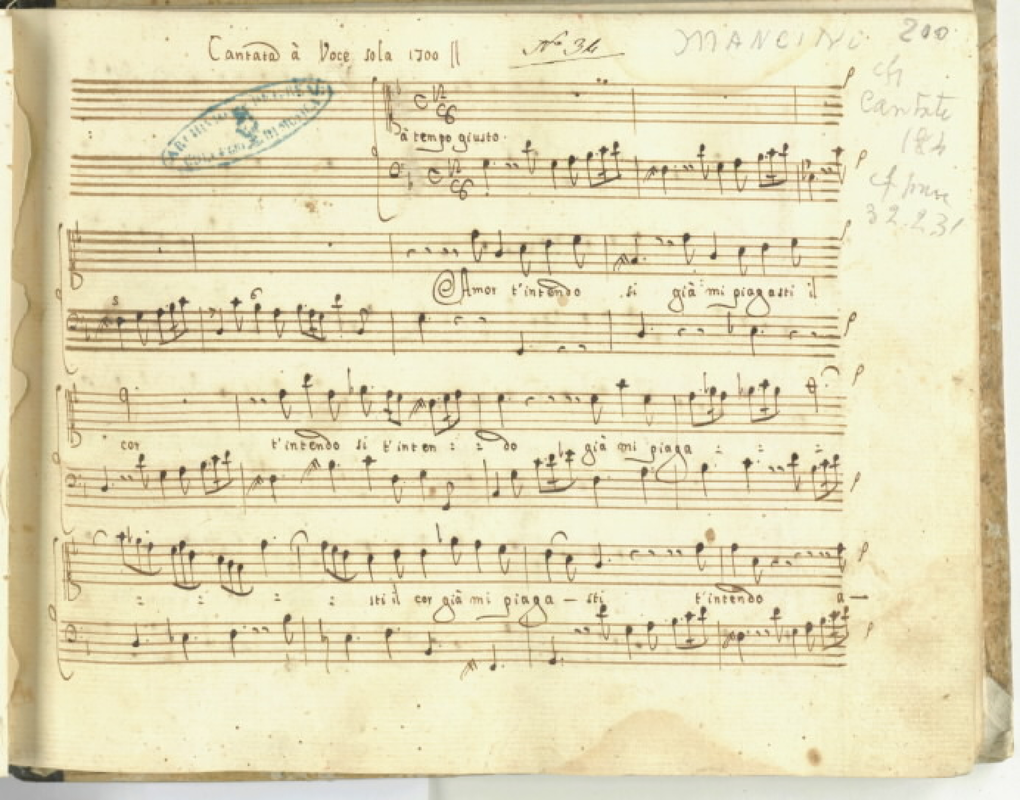 Cantata à Voce sola 1700
No 34
MANCINI 200
Cantate
184
32.2.31
à tempo giusto.
Amor t'intendo si già mi piagasti il
cor t'intendo si t'inten do già mi piaga
sti il cor già mi piaga — sti t'intendo a—